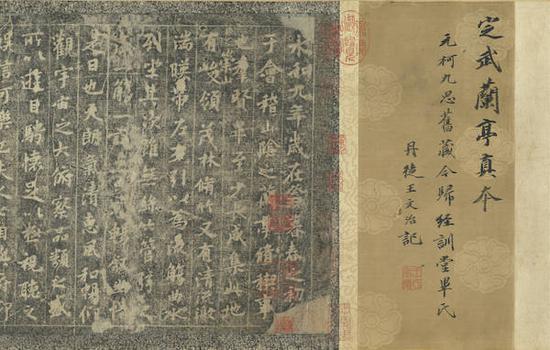 定武蘭亭真本
元柯九思舊藏今歸經訓堂畢氏
丹徒王文治記
永和九年歲在癸丑暮春之初
于會稽山陰之蘭亭脩禊事
也羣賢畢至少長咸集此地
有峻領茂林脩竹又有清流激
湍暎帶左右引以為流觴曲水
列坐其次雖無絲竹管弦之
一觴一詠亦足以暢敘幽情
是日也天朗氣清惠風和暢仰
觀宇宙之大俯察品類之盛
所以遊目騁懷足以極視聽之
娛信可樂也夫人之相與俯仰